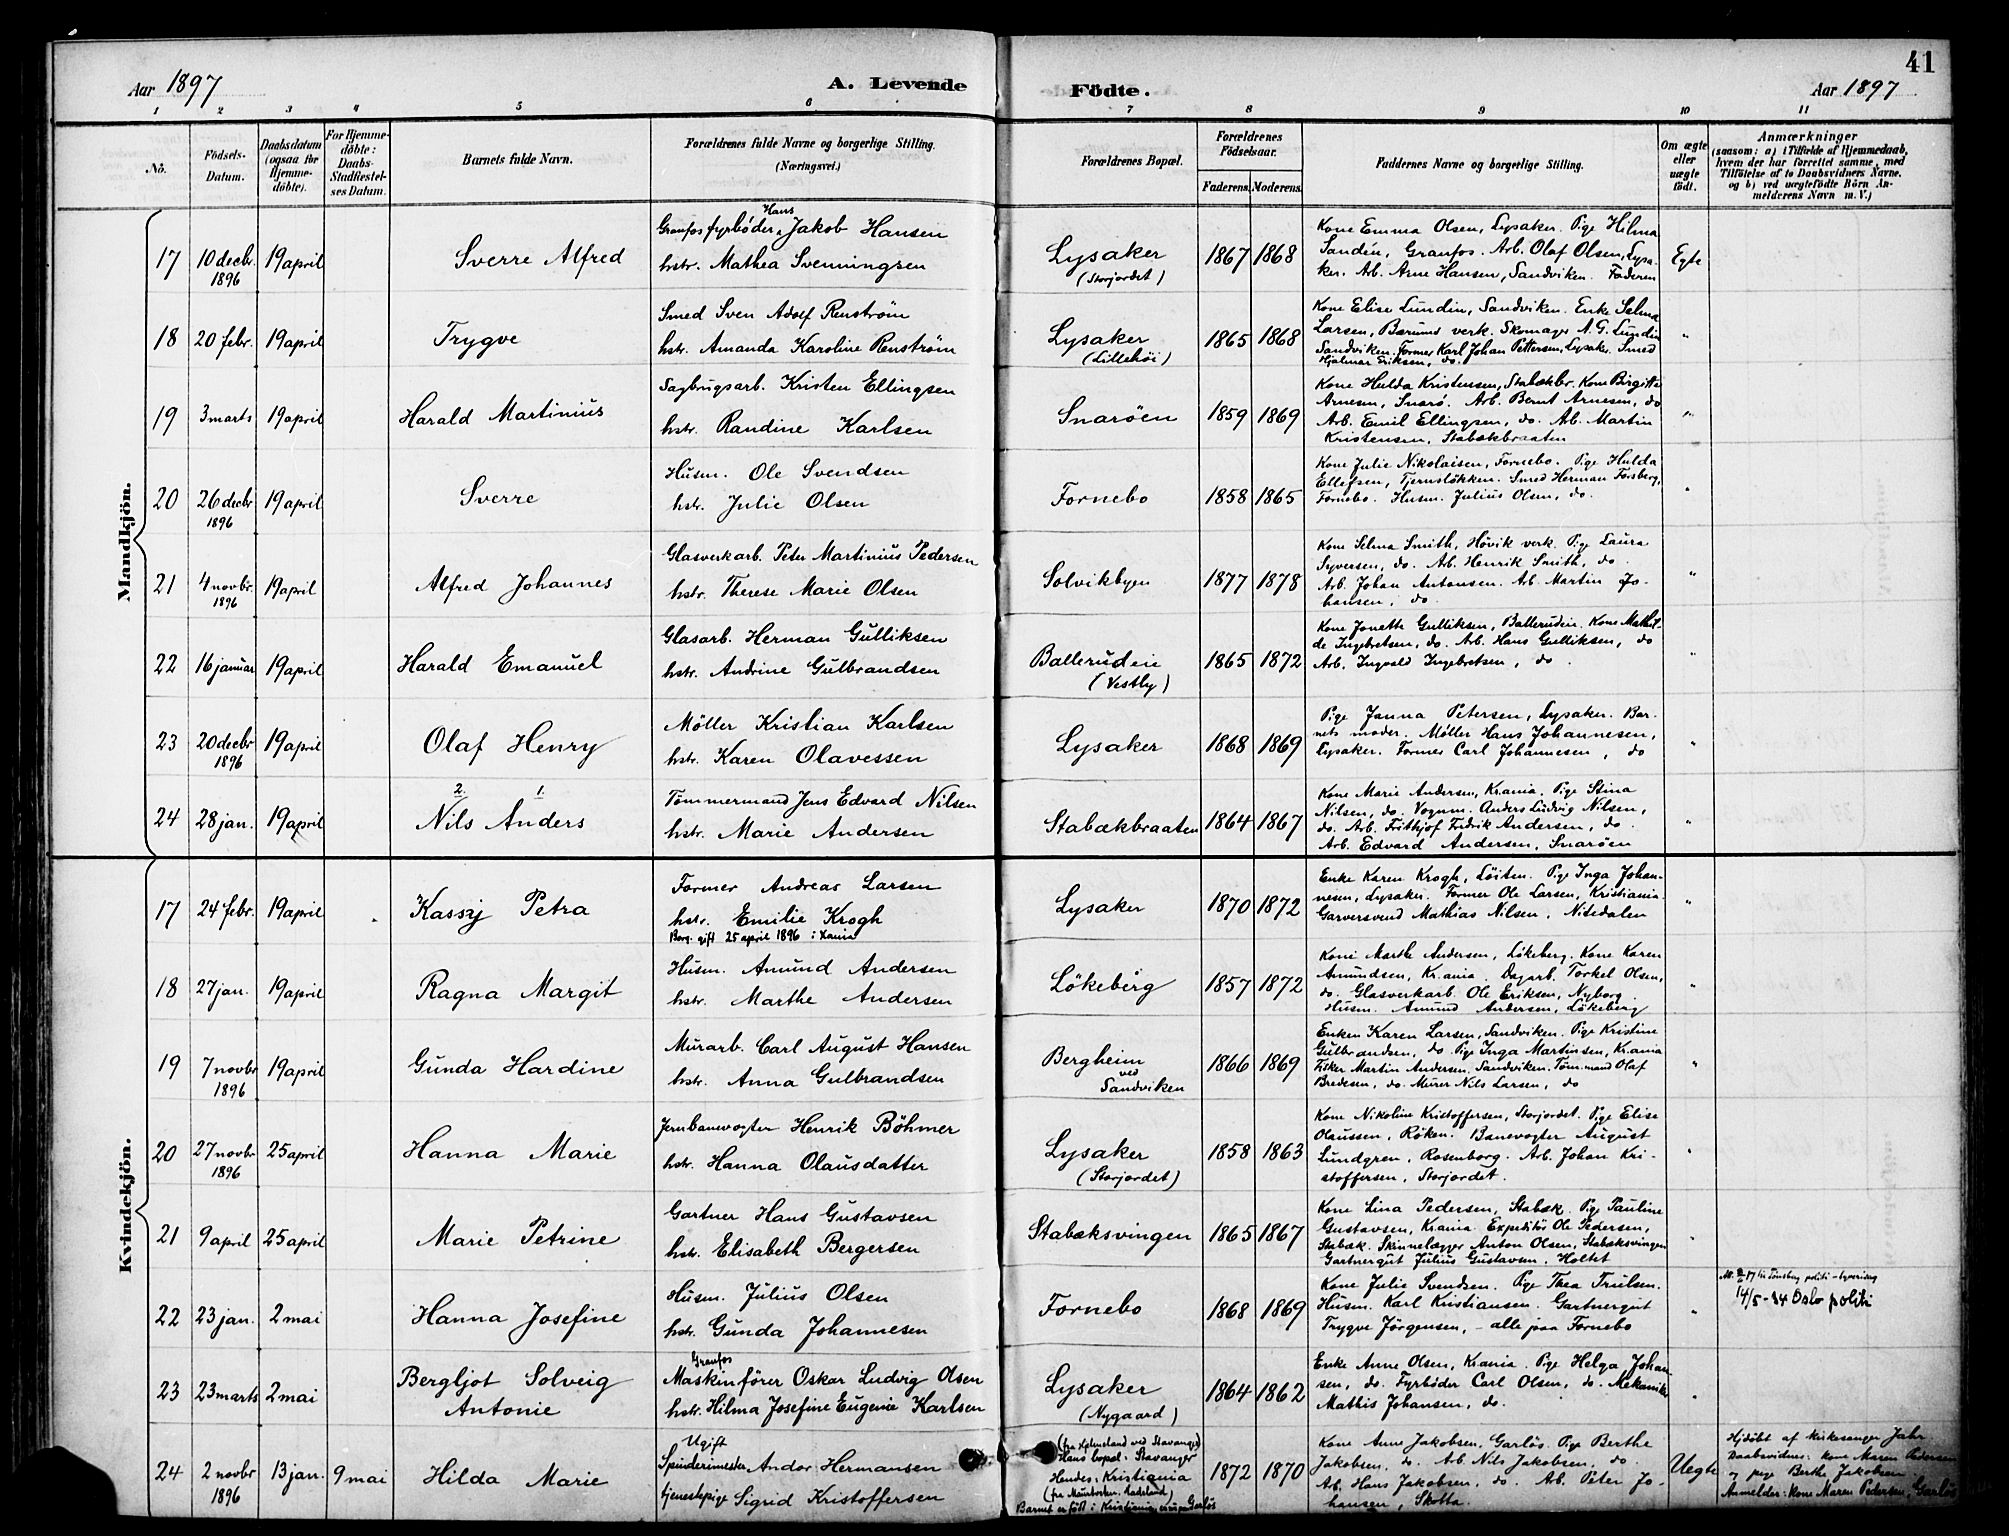 41
Aar 1897 A. Levende Födte. Aar 1897
1 2 3 4 5 6 7 8 9 10 11
No.
Födsels-Datum.
Daabsdatum (ogsaa for Hjemme-döbte).
For Hjemme-döbte: Daabs-Stadfæstel-ses Datum.
Barnets fulde Navn.
Forældrenes fulde Navne og borgerlige Stilling. (Næringsvei.)
Forældrenes Bopæl.
Forældrenes Födselsaar.
Faderens. Moderens.
Faddernes Navne og borgerlige Stilling.
Om ægte eller uægte födt.
Anmærkninger
(saasom: a) i Tilfælde af Hjemmedaab, hvem der har forrettet samme, med Tilföielse af to Daabsvidners Navne. og b) ved uægtefödte Börn An-melderens Navn m. V.)
Mandkjön.
17 10 decbr. 1896 19 april Sverre Alfred
Granfos fyrbøder Hans Jakob Hansen
hstr. Mathea Svenningsen
Lysaker (Storjordet) 1867 1868
Kone Emma Olsen, Lysaker. Pige Hilma
Sandén, Granfos. Arb. Olaf Olsen, Lysa-
ker. Ab. Arne Hansen, Sandviken. Faderen
Egte
18 20 febr. 19 april Trygve
Smed Sven Adolf Renström
hstr. Amanda Karoline Renström
Lysaker (Lillehöi) 1865 1868
Kone Elise Lundin, Sandviken. Enke Selma
Larsen, Bærums verk. Skomager A. G. Lundin
Sandviken. Former Karl Johan Pettersen, Lysaker. Smed
Hjalmar Eriksen, do.
"
19 3 marts 19 april Harald Martinius
Sagbrugsarb. Kristen Ellingsen
hstr. Randine Karlsen
Snaröen 1859 1869
Kone Hulda Kristensen, Stabækbr. Kone Birgitte
Arnesen, Snarö. Arb. Bernt Arnesen, do
Arb. Emil Ellingsen, do. Ab. Martin
Kristensen, Stabækbraaten
"
20 26 decbr 1896 19 april Sverre
Husm. Ole Svendsen
hstr. Julie Olsen
Fornebo 1858 1865
Kone Julie Nikolaisen, Fornebo. Pige Hulda
Ellefsen, Tjernsløkken. Smed Herman Forsberg,
Fornebo. Husm. Julius Olsen, do.
"
21 4 novbr. 1896 19 april Alfred Johannes
Glasverkarb. Peter Martinius Pedersen
hstr. Therese Marie Olsen
Solvikbyen 1877 1878
Kone Selma Smith, Hövik verk. Pige Laura
Syversen, do. Arb. Henrik Smith, do.
Arb. Johan Antonsen. Ab. Martin Jo-
hansen, do
"
22 16 januar 19 april Harald Emanuel
Glasarb. Herman Gulliksen
hstr. Andrine Gulbrandsen
Balleruden (Vestby) 1865 1872
Kone Jonette Gulliksen, Balleruden. Kone Mathil-
de Ingebretsen, do. Arb. Hans Gulliksen, do
Arb. Ingvald Ingebretsen, do.
"
23 20 decbr 1896 19 april Olaf Henry
Möller Kristian Karlsen
hstr. Karen Olavessen
Lysaker 1868 1869
Pige Janna Petersen, Lysaker. Bar-
nets moder. Møller Hans Johannesen,
Lysaker. Former Carl Johannesen, do
"
24 28 jan. 19 april 2. 1. Nils Anders
Tömmermand Jens Edvard Nilsen
hstr. Marie Andersen
Stabækbraaten 1864 1867
Kone Marie Andersen, Krania. Pige Stina
Nilsen, do. Vognm. Anders Ludvig Nilsen,
do. Arb. Frithjof Fredrik Andersen, do.
Arb. Edvard Andersen, Snaröen
"
Kvindekjön.
17 24 febr. 19 april Kassy Petra
Former Andreas Larsen
hstr. Emilie Krogh
Borg. gift 25 april 1896 i Krania
Lysaker 1870 1872
Enke Karen Krogh, Löiten. Pige Inga Johan-
nesen, Lysaker. Former Ole Larsen, Kristiania
Garversvend Mathias Nilsen, Nitedalen
"
18 27 jan. 19 april Ragna Margit
Husm. Amund Andersen
hstr. Marthe Andersen
Lökeberg 1857 1872
Kone Marthe Andersen, Lökeberg. Kone Karen
Amundsen, Krania. Dagarb. Torkel Olsen,
do. Glasverkarb. Ole Eriksen, Nyborg.
Husm. Amund Andersen, Lökeberg
"
19 7 novbr 1896 19 april Gunda Hardine
Murarb. Carl August Hansen
hstr. Anna Gulbrandsen
Bergheim ved Sandviken 1866 1869
Enken Karen Larsen, Sandviken. Pige Kristine
Gulbrandsen, do. Pige Inga Martinsen, Krania
Fisker Martin Andersen, Sandviken. Töm.mand Olaf
Bredesen, do. Murer Nils Larsen, do
"
20 27 novbr 1896 25 april Hanna Marie
Jernbanevogter Henrik Böhmer
hstr. Hanna Olausdatter
Lysaker (Storjordet) 1858 1863
Kone Nikoline Kristoffersen, Storjordet. Pige Elise
Olaussen, Röken. Banevogter August
Lundgren, Rosenborg. Arb. Johan Kri-
stoffersen, Storjordet.
"
21 9 april 25 april Marie Petrine
Gartner Hans Gustavsen
hstr. Elisabeth Bergersen
Stabæksvingen 1865 1867
Kone Lina Pedersen, Stabæk. Pige Pauline
Gustavsen, Krania. Expeditör Ole Pedersen,
Stabæk. Skinnelægger Anton Olsen, Stabæksvingen
Gartnergut Julius Gustavsen, Holtet
"
22 23 jan. 2 mai Hanna Josefine
Husm. Julius Olsen
hstr. Gunda Johannesen
Fornebo 1868 1869
Kone Julie Svendsen. Pige Thea Trulsen.
Husm. Karl Kristiansen. Gartnergut
Trygve Jörgensen, - alle paa Fornebo
"
14/5-34 Oslo politi
23 23 marts 2 mai Bergljot Solveig
Antonie
Granfos
Maskinförer Oskar Ludvig Olsen
hstr. Hilma Josefine Eugenie Karlsen
Lysaker (Nygaard) 1864 1862
Enke Anne Olsen, Krania. Pige Helga Johan-
sen, do. Fyrbøder Carl Olsen, do. Mekaniker
Mathis Johansen, do.
"
24 2 novbr 1896 13 jan. 9 mai Hilda Marie
Ugift
Spinderimester Andor Hermansen
tjenestepige Sigrid Kristoffersen
Hans bopæl: Stavanger
Hendes: Kristiania
1872 1870
Kone Anne Jakobsen, Garløs. Pige Berthe
Jakobsen, do. Ab. Nils Jakobsen, do
Ab. Hans Jakobsen, do. Ab. Peter Jo-
hansen, Skotta.
Uegte
Hjdöbt af kirkesanger Jahr
Daabsvidner: Kone Maren Pedersen
og pige Berthe Jakobsen
Anmelder: kone Maren Pedersen, Garløs